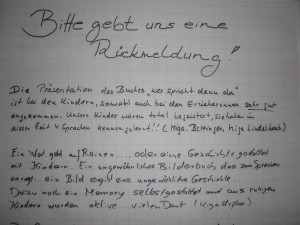 Bitte gebt uns eine
Rückmeldung!
Die Präsentation des Buches "wer spricht denn da"
ist bei den Kindern, sowohl auch bei den Erzieherinnen sehr gut
angekommen. Unsere Kinder waren total begeistert, sie haben in
dieser Zeit 4 Sprachen kennen gelernt!! (
Ein Wal geht auf Reisen... oder eine Geschichte gestaltet
mit Kindern. Ein ungewöhnliches Bilderbuch das zum Sprechen
anregt... ein Bild ergibt eine ungewöhnliche Geschichte
Dazu noch ein Memory selbstgestaltet und aus ruhigen
Kindern wurden aktive... vielen Dank